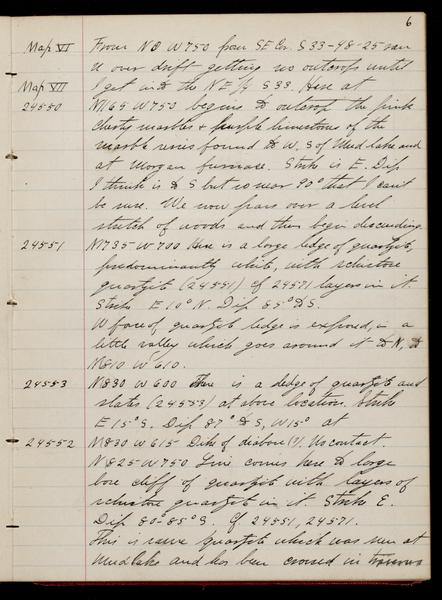 6
Map VI From N0 W750 from SE Cor. S33-48-25 ran
N over drift getting no outcrops until
Map VII I get into the NE/4 S33. Here at
24550 N1165 W750 begins to outcrop the pink
cherty marbles + purple limestones of the
marble series found to W, S of Mud Lake and
at Morgan furnace. Strike is E. Dip
I think is to S but so near 90° that I can't
be sure. We now pass over a level
stretch of woods and then begin descending.
24551 N1735 W700 Here is a large ledge of quartzite,
predominantly white, with schistose
quartzite (24551) cf 24571 layers in it.
Strike E10°N. Dip 85° to S.
W face of quartzite ledge is exposed, in a
little valley which goes around it to N, to
N1810 W610.
24553 N1830 W600 There is a ledge of quartzite and
slates (24553) at above location. Strike
E15°S. Dip 87° to S, W15° at
24552 N1830 W615 Dike of diabase(?). No contact.
N1825 W750 Line comes here to large
bare cliff of quartzite with layers of
schistose quartzite in it. Strike E.
Dip 80°-85° S. Cf 24551, 24571.
This is same quartzite which was seen at
Mud Lake and has been crossed in